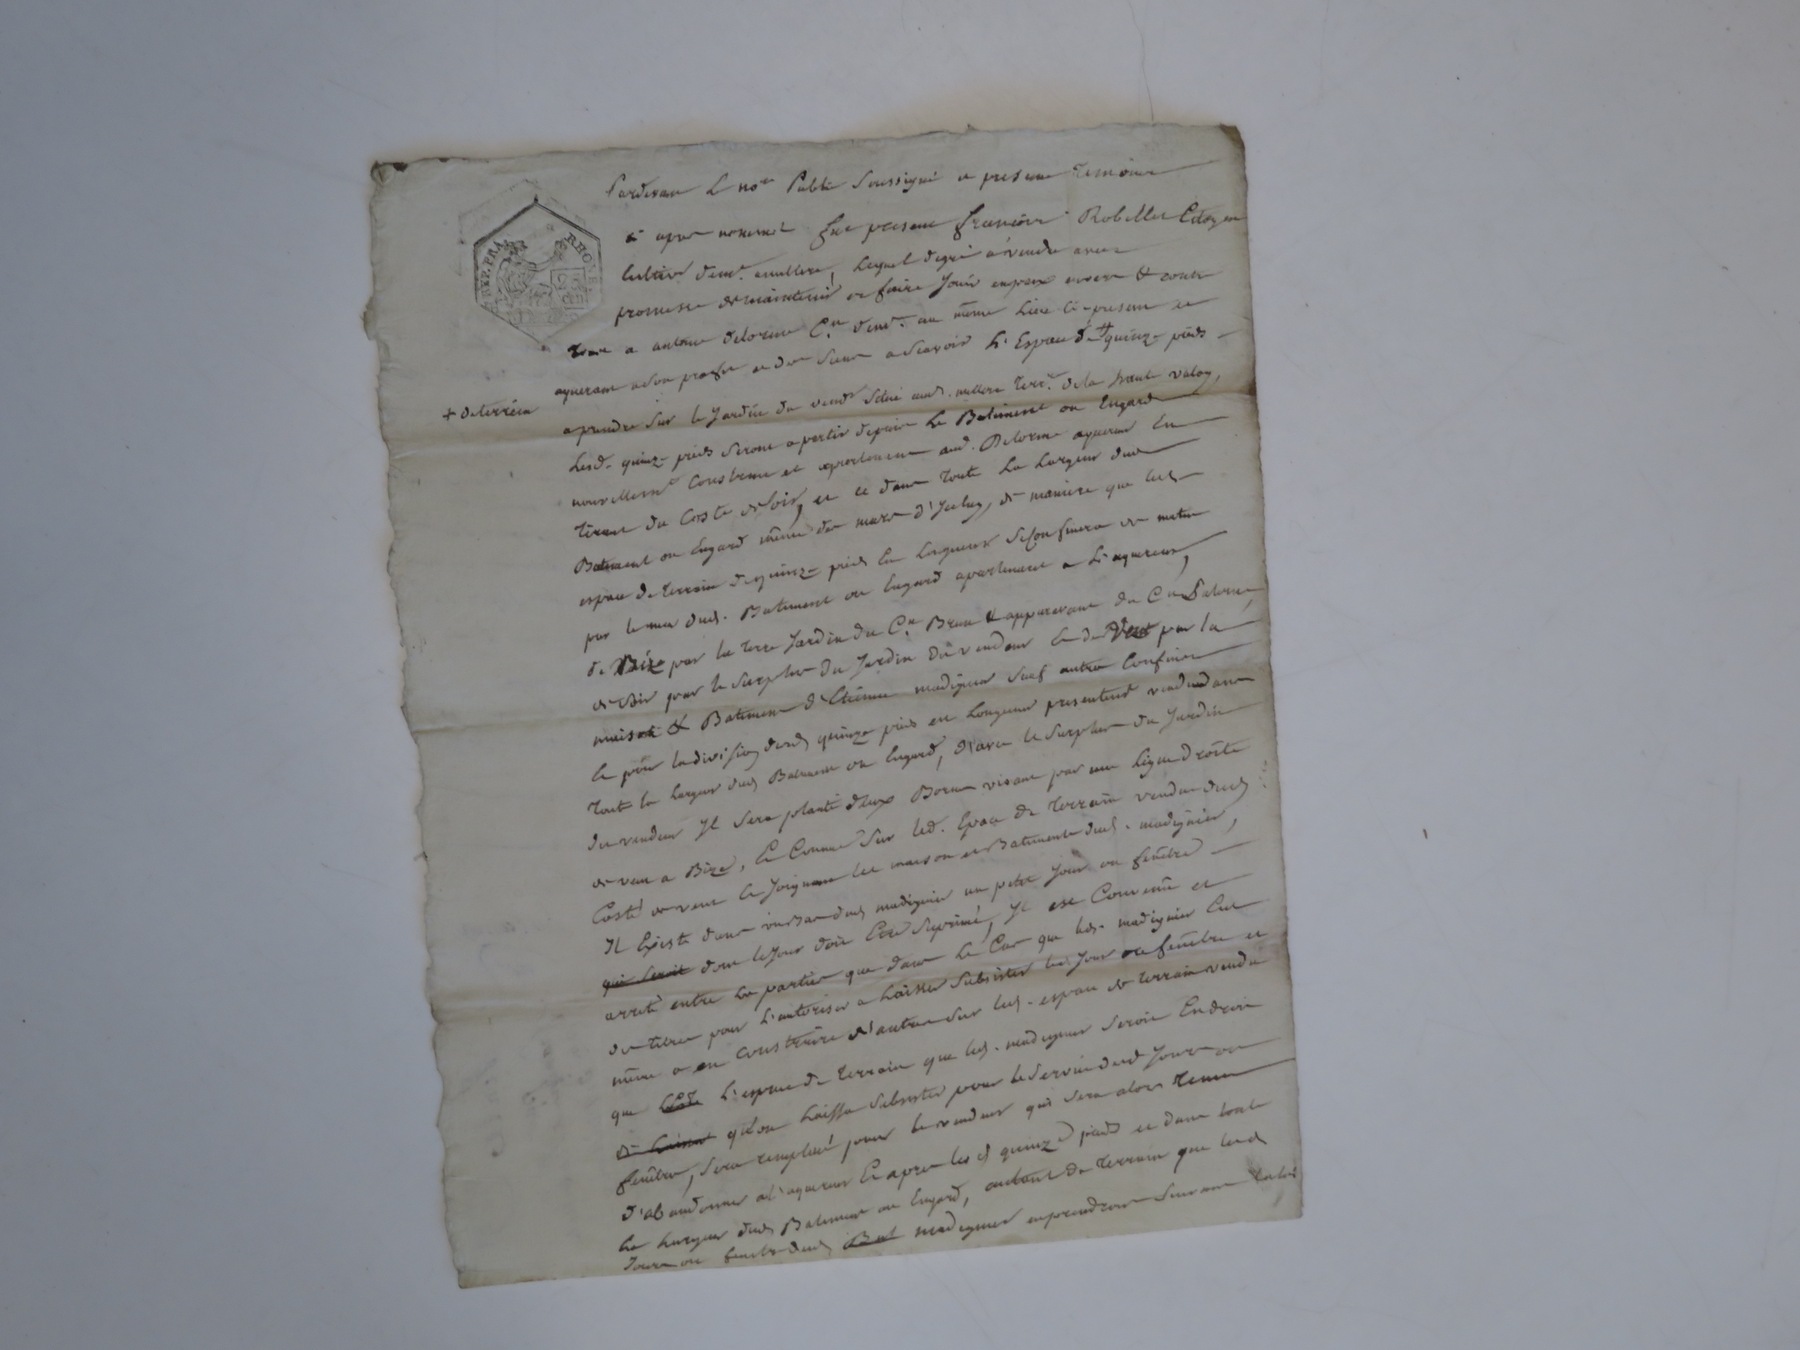 REP. FRA.
RHONE
Pardevant le no.re Public Soussigné et presents temoins
ci apres nommes fut present françois Robellet Citoyen
Cultiv.r dem.t amillere, lequel degré a vendu avec
promesse de maintenir et faire Jouir en paix envers & contre
tous a antoine delorme C.en dem.t au même Lieu ci-present et
aquerant a Son profit et des Siens a Scavoir L'Espace de # quinze pieds
+ de terrein
aprendre Sur le Jardin du vend.r Situé aud. millere terr.e de la haute valoy,
Lesd. quinze pieds Seront a partir depuis le Batiment ou Engard
nouvellem.t Construit et apartenant aud. Delorme aquereur En
tirant du Costé de Soir, et ce dans toute la Largeur dud.
Batiment ou Engard de maniere que led.
espace de terrein de quinze pieds En Longueur Se Confinera de matin
par le mur dud. Batiment ou Engard apartenant a L'aquereur,
de Bize par la terre Jardin du C.en Brun & apparavant du C.en
de Soir par le Surplus du Jardin du vendeur Et de Vent par la
maison & Batiment d'Etienne madignier Sauf autres Confins
Et pour la division desd. quinze pieds en Longueur presentement vendu dans
tout la Largeur dud. Batiment ou Engard, d'avec le Surplus du Jardin
du vendeur Il Sera planté deux Bornes visant par une Ligne droite
de vent a Bize, Et Comme Sur led. Espace de terrein vendu dud.
Costé de vent Et Joignant les maison et Batiments dud. madignier,
Il Existe dans dud. madignier un petit Jour ou fenêtre
qui Seroit dont le Jour doit Etre Suprimé, Il est Convenu et
arreté entre les parties que dans le Cas que led. madignier Eut
des titres pour L'autoriser a Laisser Subsister led. Jour ou fenêtre et
même a en Construire d'autres Sur led. espace de terrein vendu
que L'espace de terrein que led. madignier Seroit En droit
qu'on Laissa Subsister pour le Service desd. Jours ou
fenêtres, Sera remplacé pour le vendeur qui Sera alors tenu
d'abandonner a L'aquereur Et apres les d. quinze pieds et dans tout
La Largeur dud. Batiment ou Engard, autant de terrein que led.
Jours ou fenêtres dud. Bat madignier en prendront Suivant